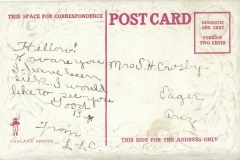 THIS SPACE FOR CORRESPONDENCE
POST CARD
DOMESTIC
ONE CENT
FOREIGN
TWO CENTS
Hellow!
How are you
I have been
sick I would
like to see you
Good
From
Mrs S. H. Crosby
Eager
Ariz
GARLAND SERIES
THIS SIDE FOR THE ADDRESS ONLY